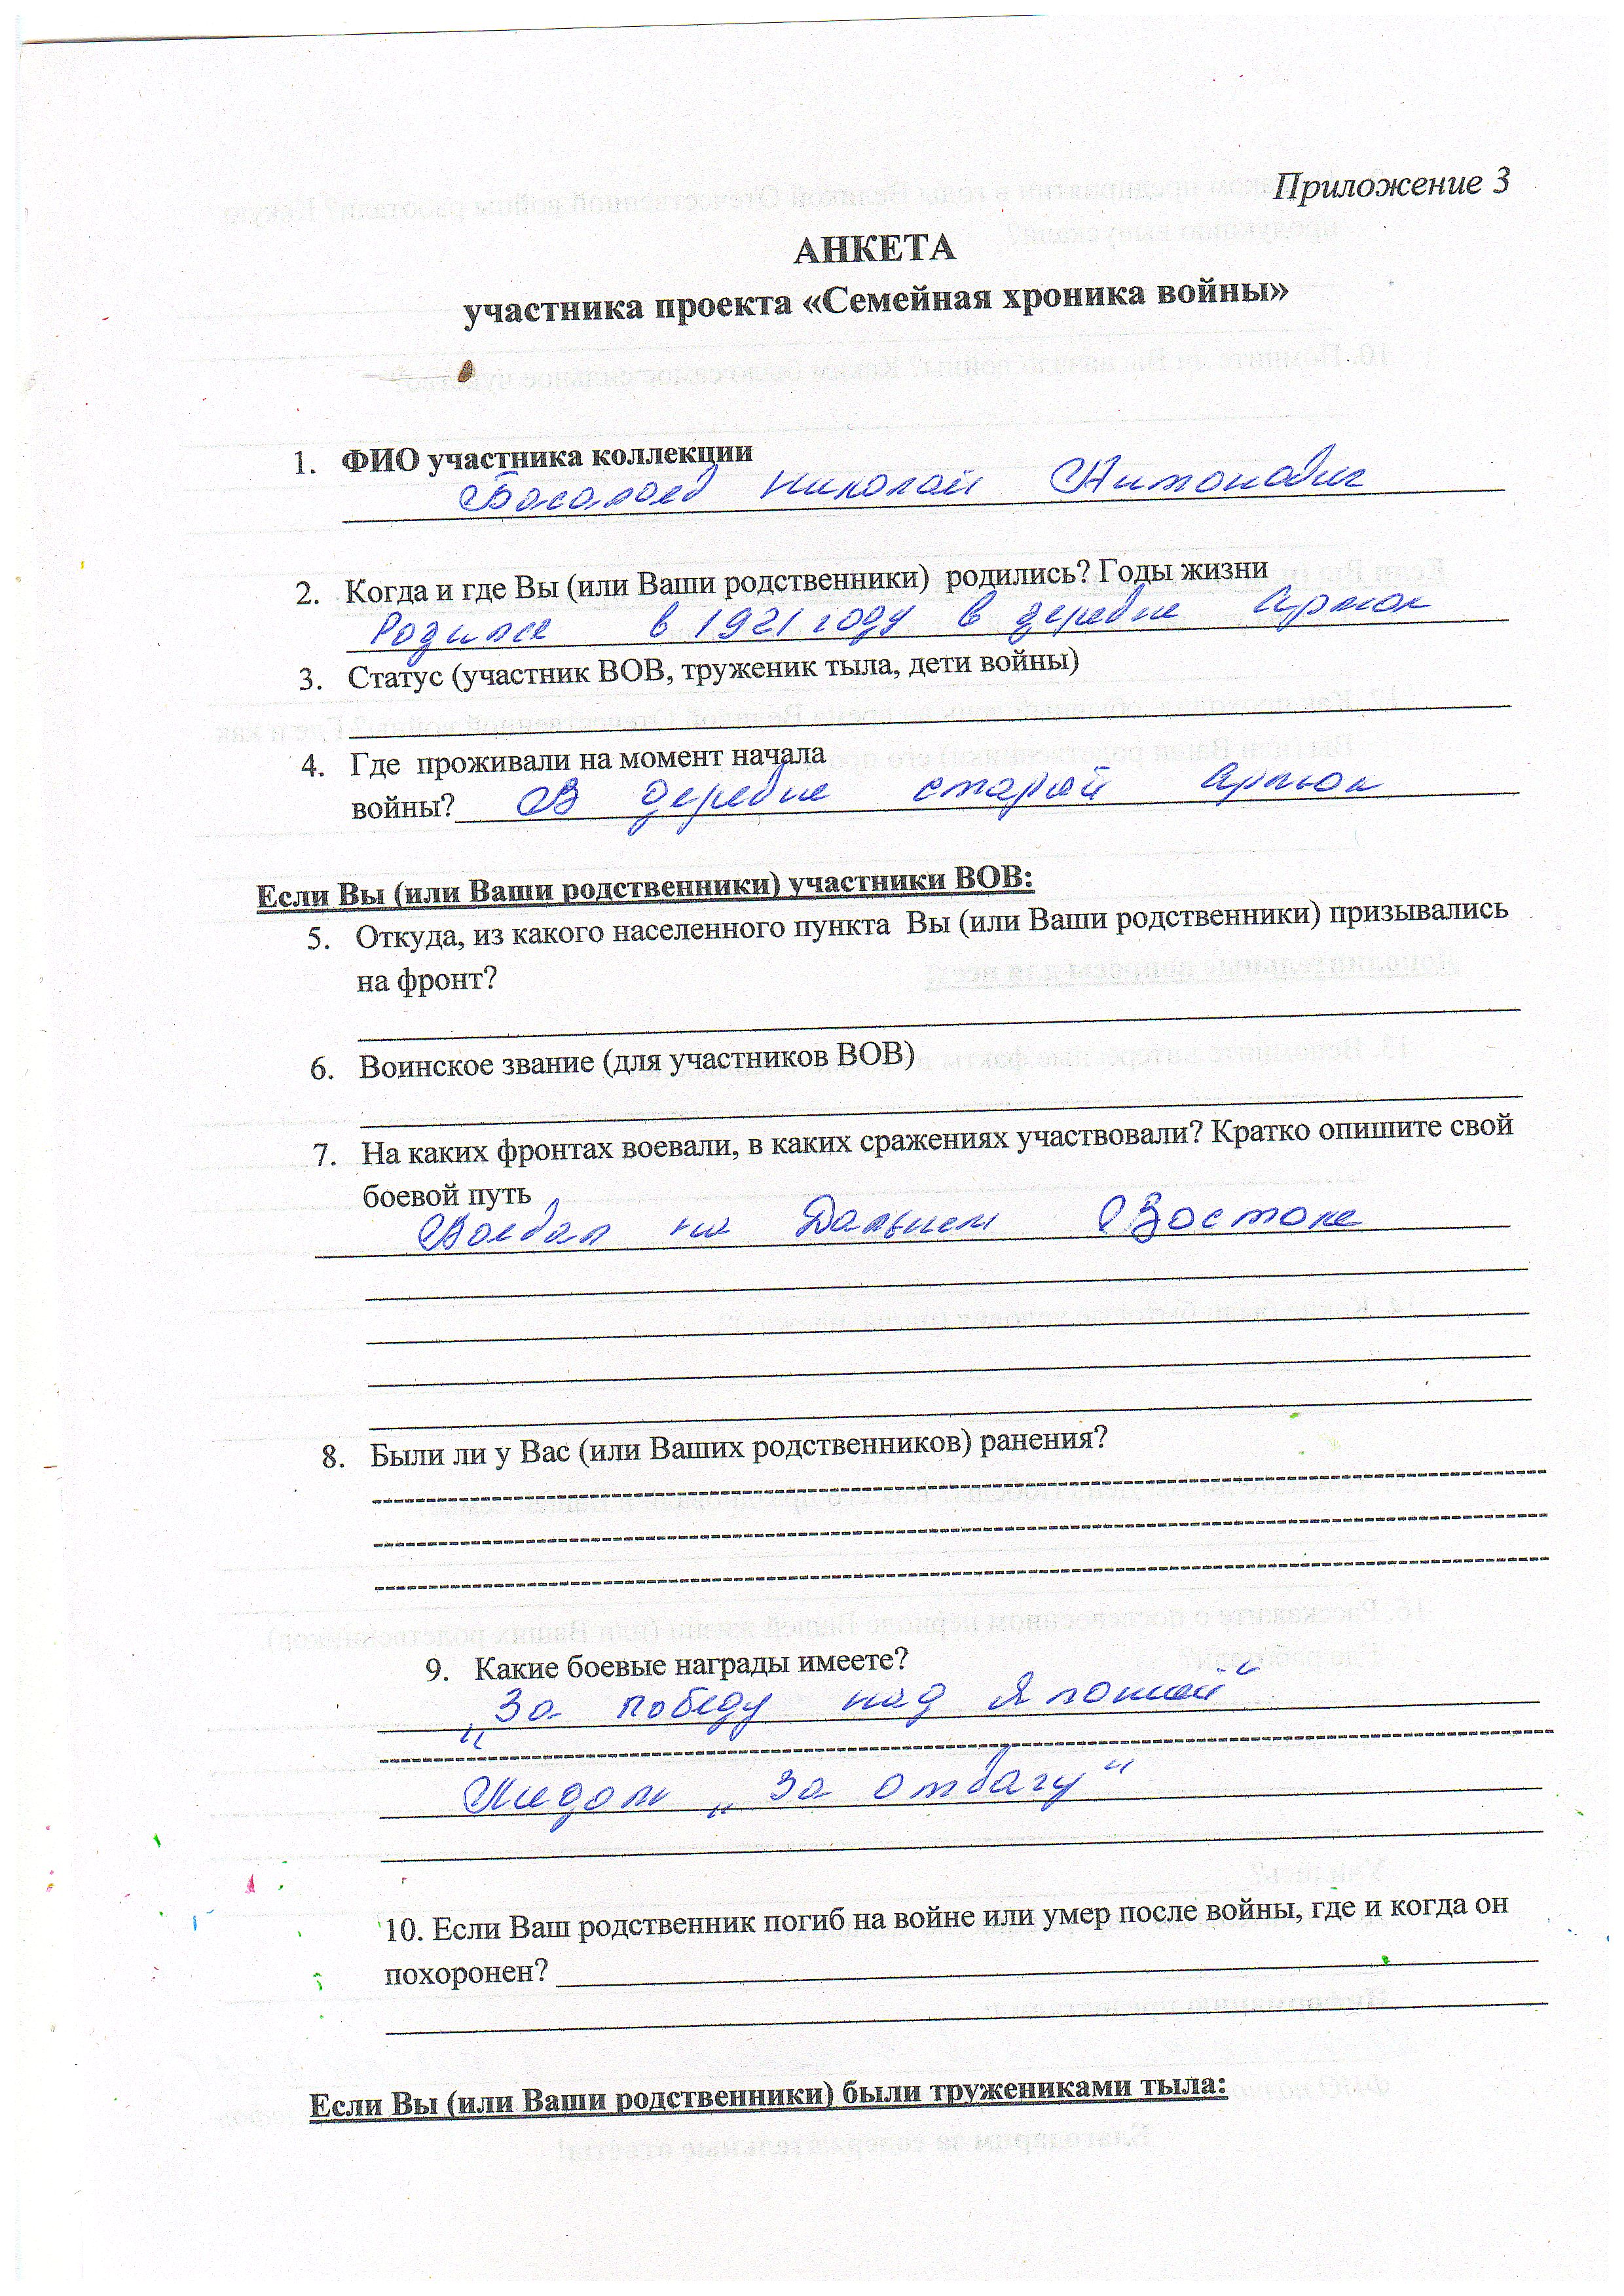 Приложение 3
АНКЕТА
участника проекта «Семейная хроника войны»
1. ФИО участника коллекции
Николай Антонович
2. Когда и где Вы (или Ваши родственники) родились? Годы жизни
Родился в 1921 году в деревне Артюк
3. Статус (участник ВОВ, труженик тыла, дети войны)
4. Где проживали на момент начала
войны? В деревне старой Артюк
Если Вы (или Ваши родственники) участники ВОВ:
5. Откуда, из какого населенного пункта Вы (или Ваши родственники) призывались
на фронт?
6. Воинское звание (для участников ВОВ)
7. На каких фронтах воевали, в каких сражениях участвовали? Кратко опишите свой
боевой путь
Воевал на Дальнем Востоке
8. Были ли у Вас (или Ваших родственников) ранения?
9. Какие боевые награды имеете?
„За победу над Японией“
Медаль „За отвагу“
10. Если Ваш родственник погиб на войне или умер после войны, где и когда он
похоронен?
Если Вы (или Ваши родственники) были тружениками тыла: